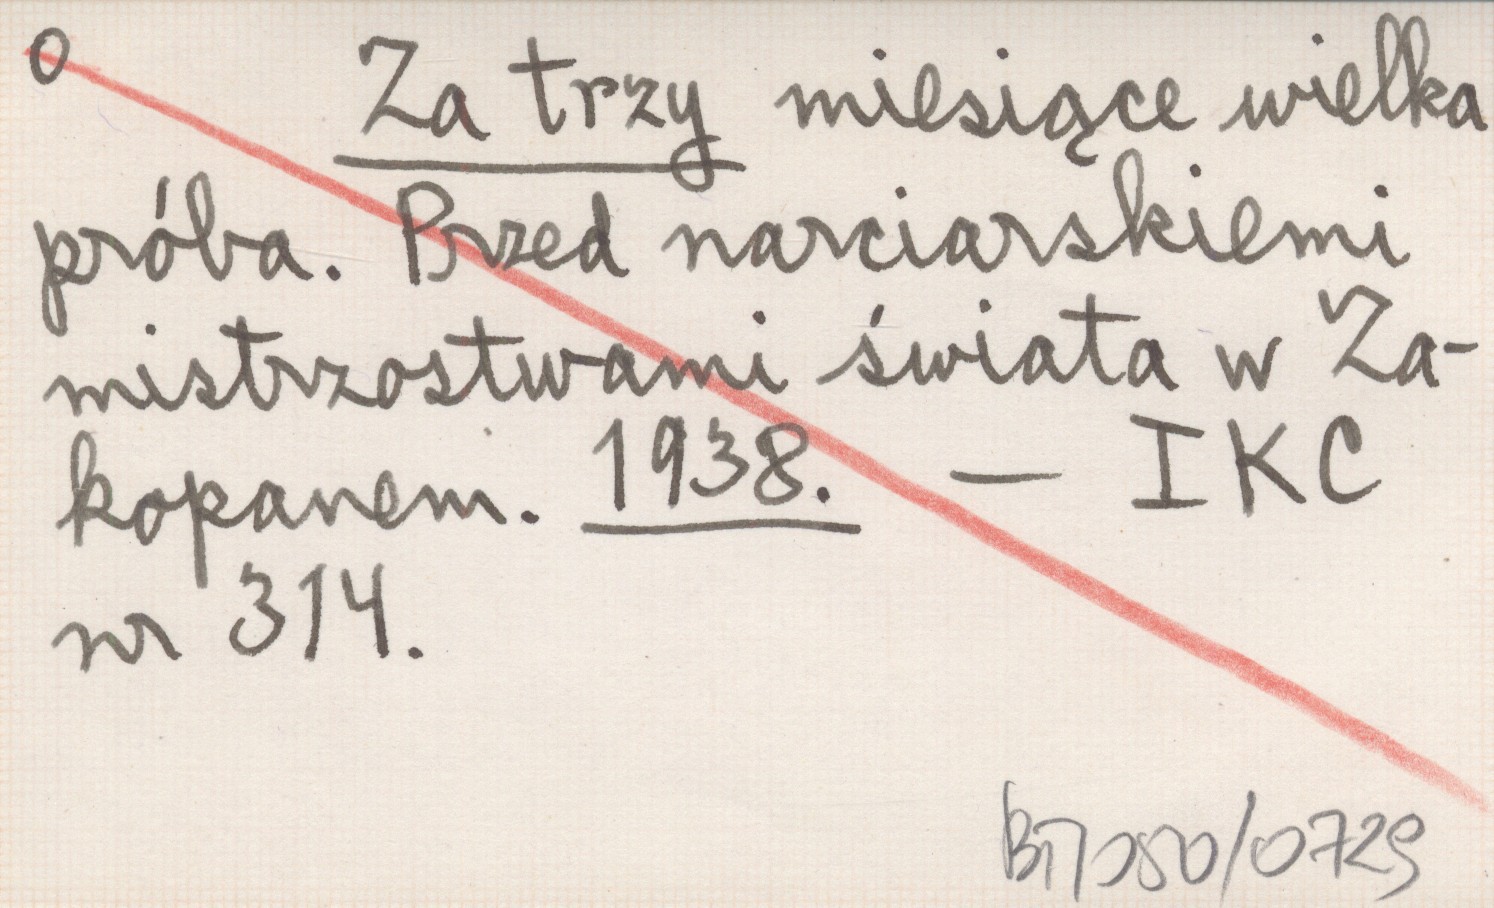 o Za trzy miesiące wielka
próba. Przed narciarskiemi
mistrzostwami świata w Za-
kopanem. 1938. — IKC
nr 314.
/0729